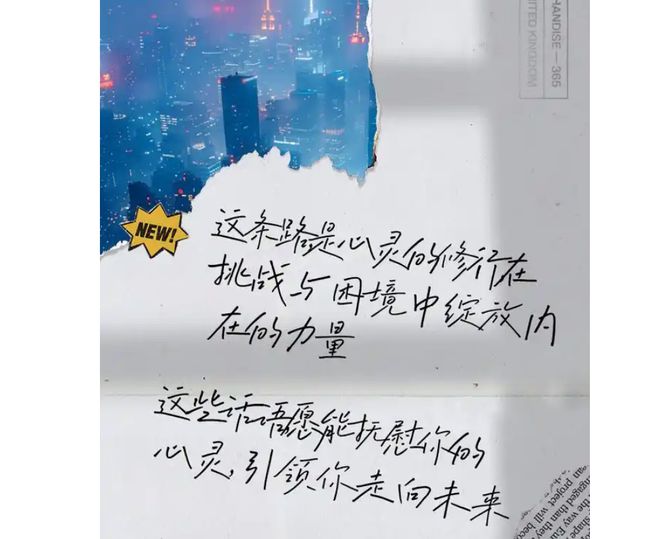 HANDISE — 365
ITED KINGDOM
NEW!
这条路是心灵的修行在
挑战与困境中绽放内
在的力量
这些话语愿能抚慰你的
心灵,引领你走向未来